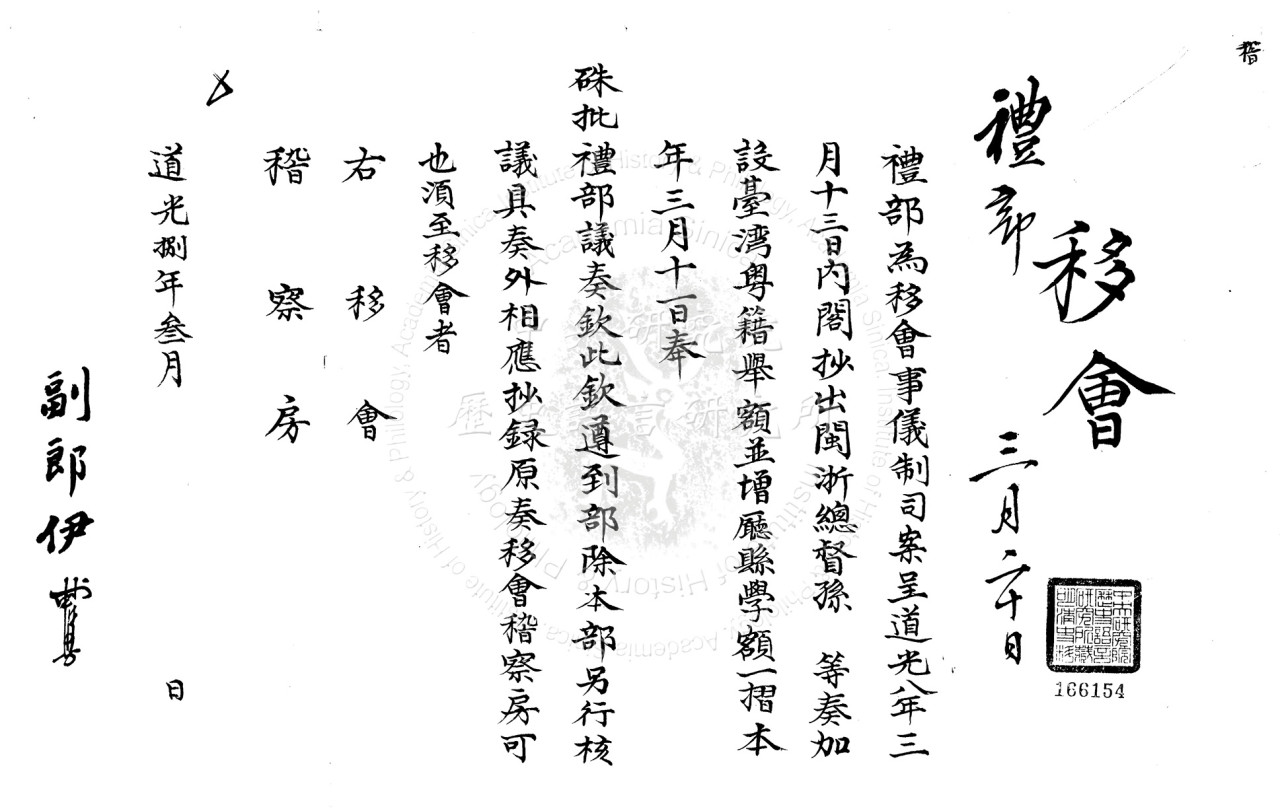 稽
禮部
移會
三月二十日
禮部為移會事儀制司案呈道光八年三
月十三日內閣抄出閩浙總督孫 等奏加
設臺湾粤籍舉額並增廳縣學額一摺本
年三月十一日奉
硃批禮部議奏欽此欽遵到部除本部另行核
議具奏外相應抄録原奏移會稽察房可
也湏至移會者
右移會
稽察房
道光捌年叁月 日
副郎伊
中央研究院歷史語言研究所藏明清史料
166154
中央研究院
歷史語言研究所
Institute of History & Philology, Academia Sinica